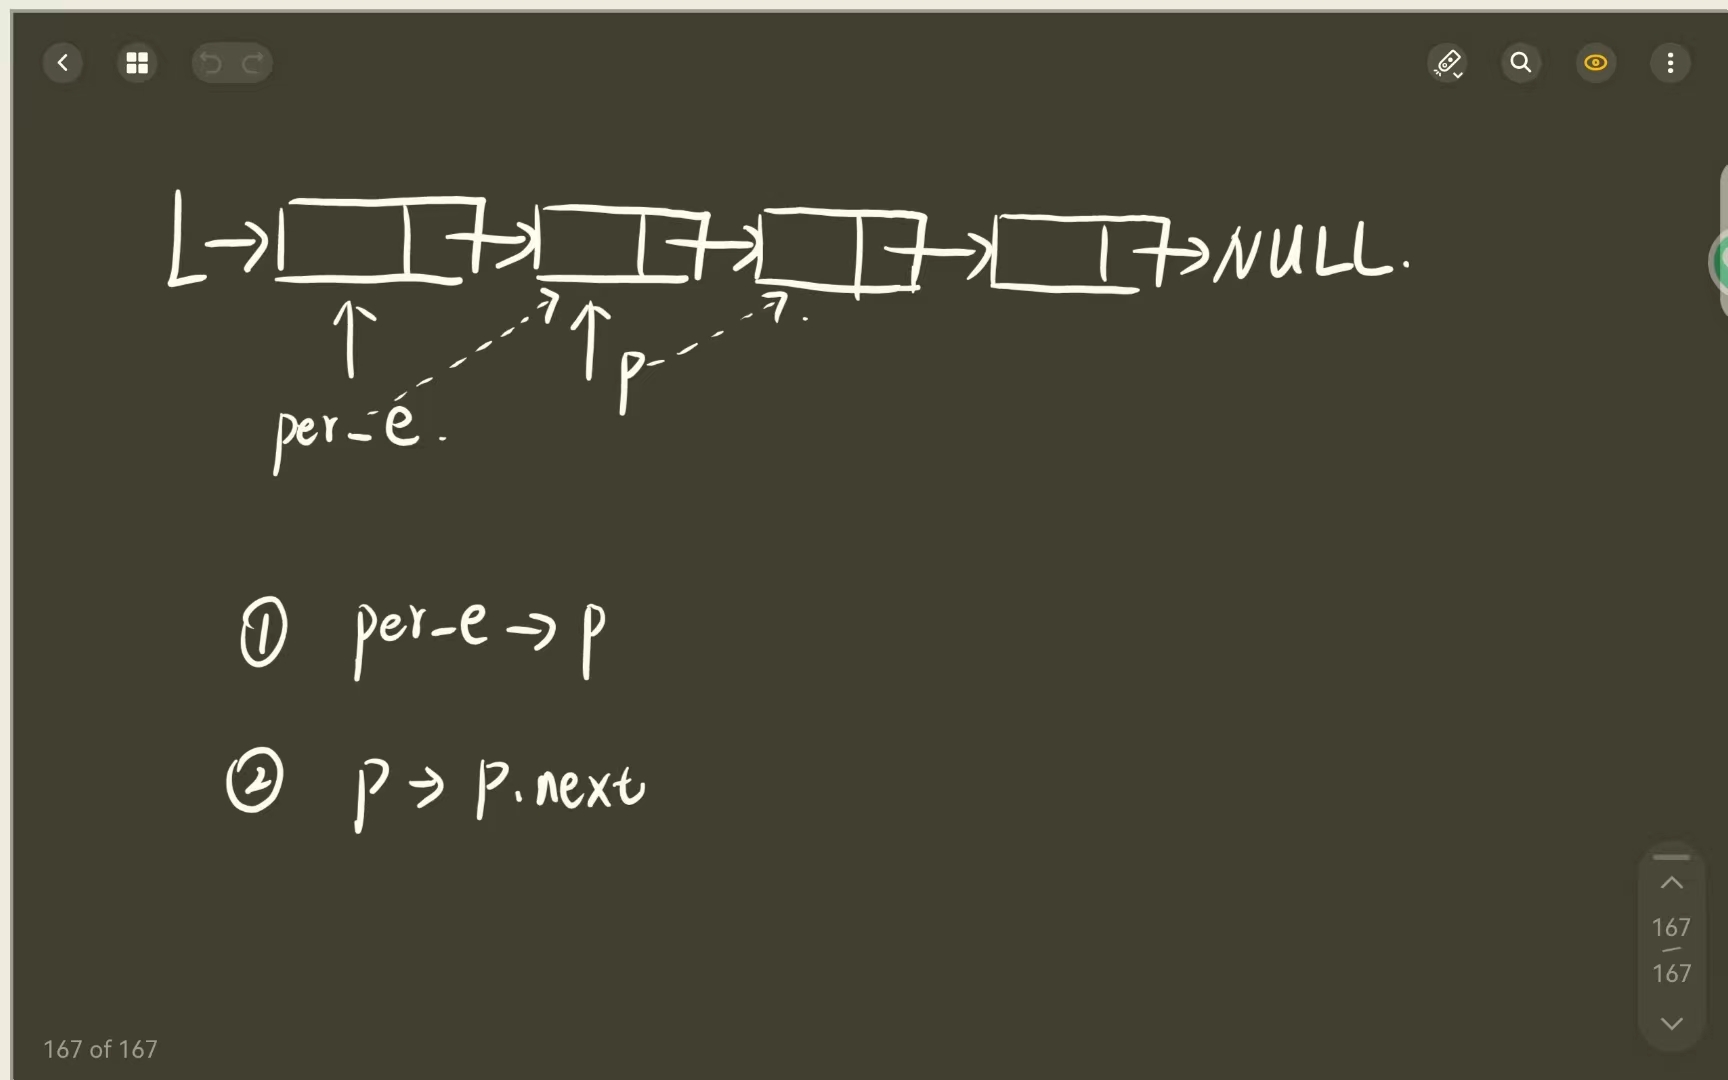 L → → → → → NULL.
p
per-e.
① per-e → p
② p → p.next
167
167
167 of 167